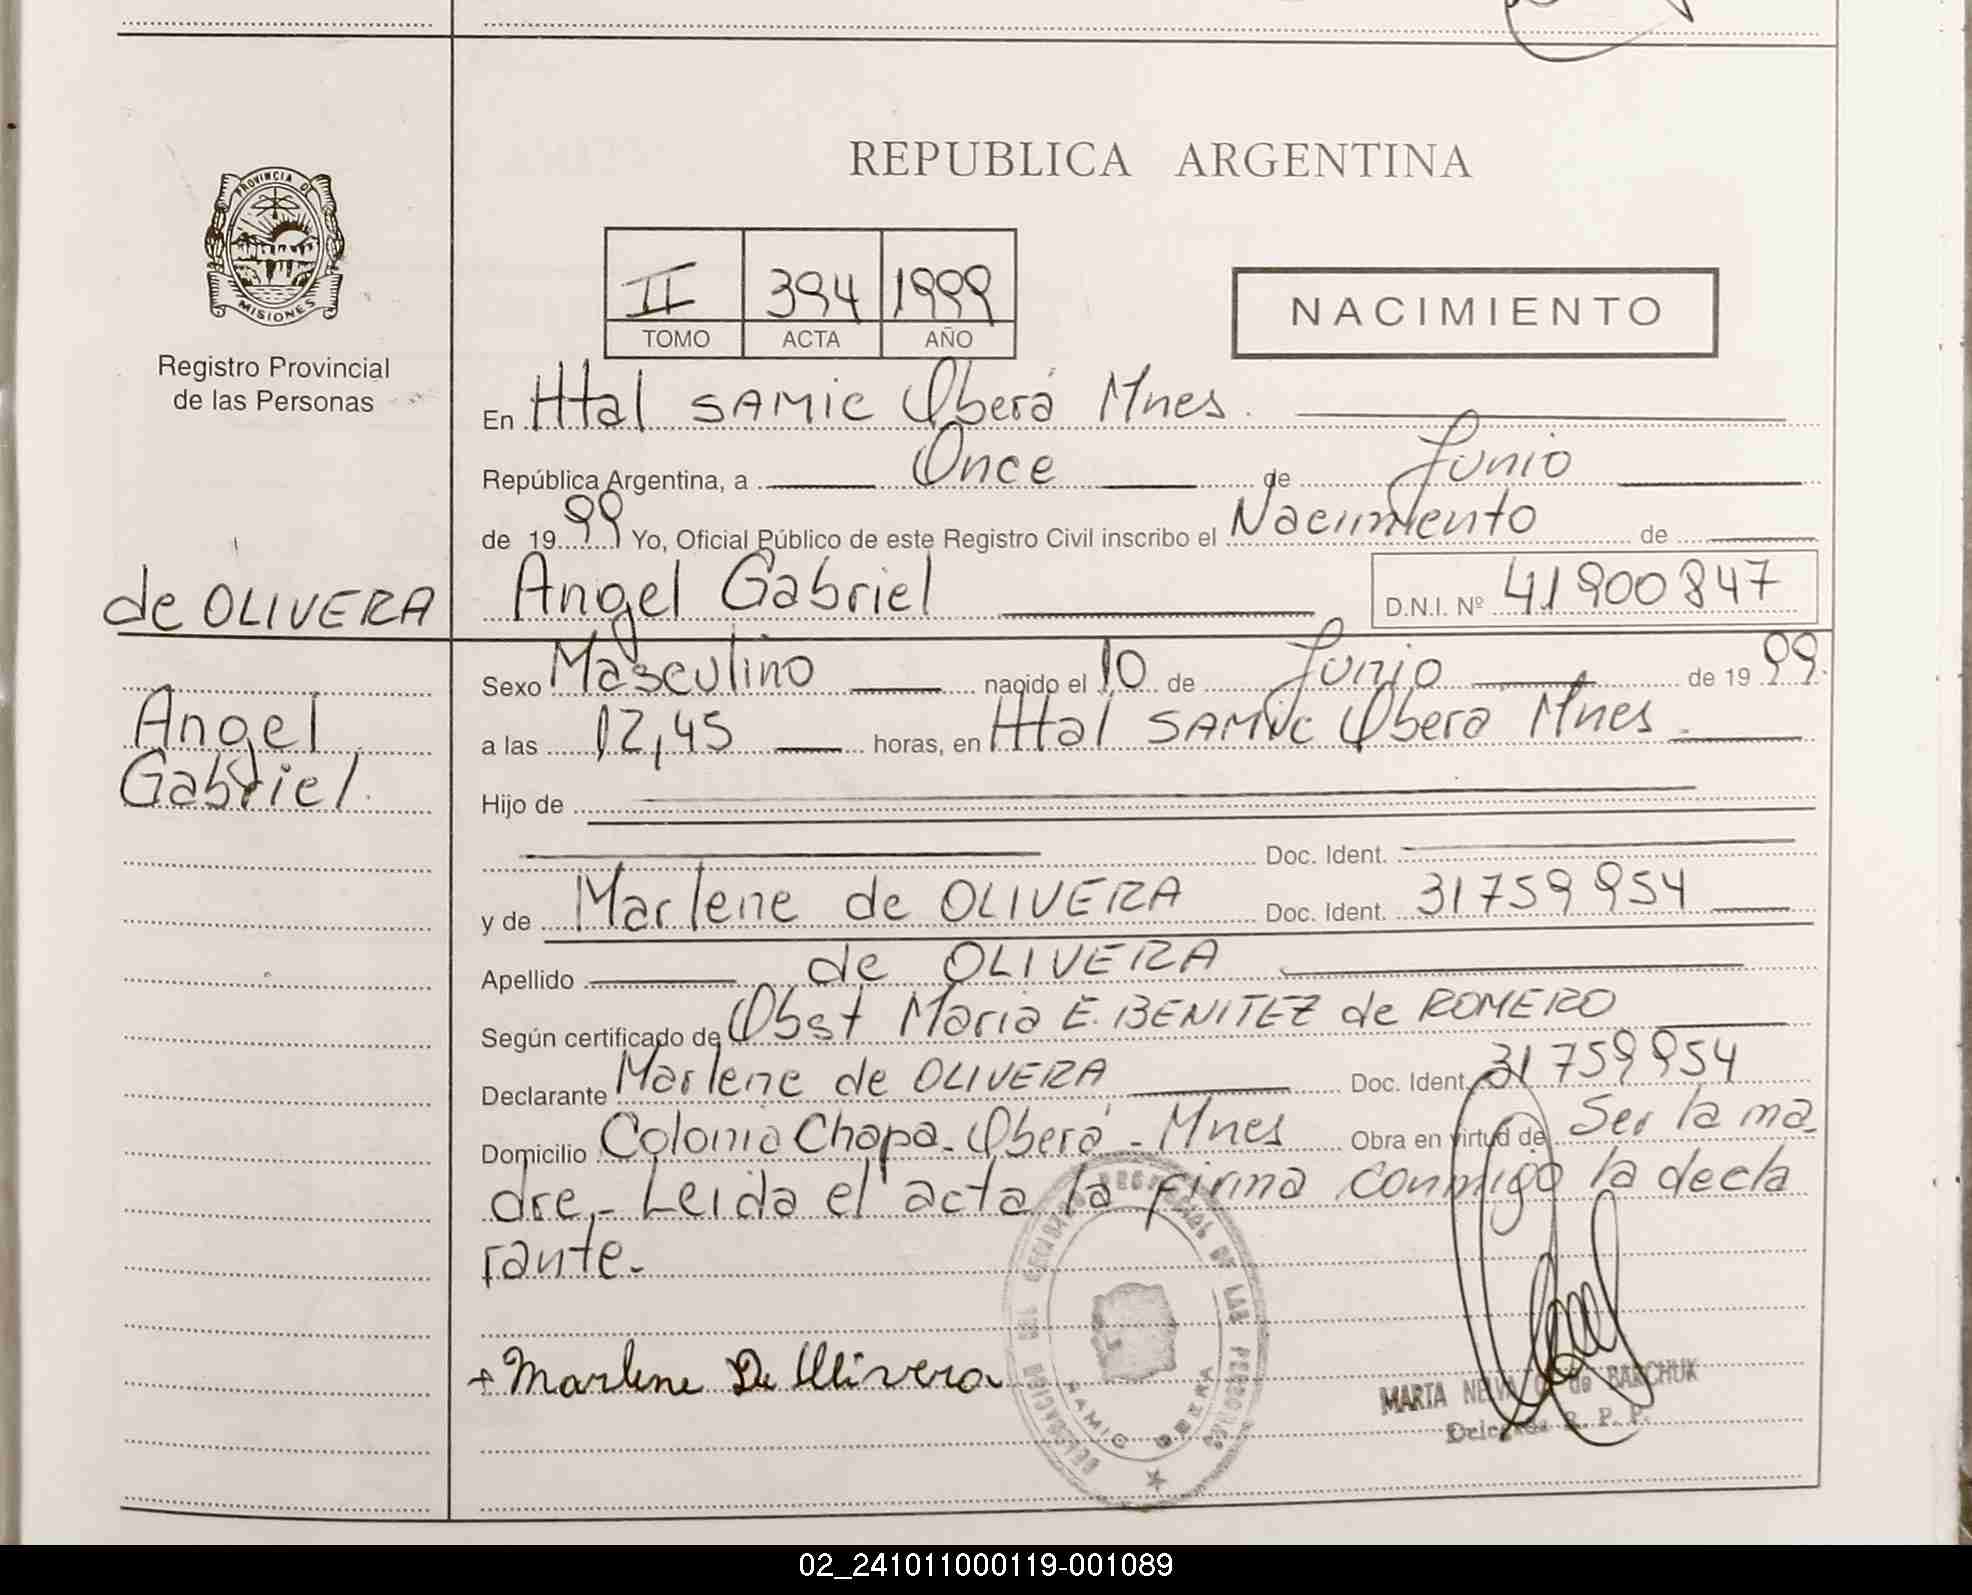 PROVINCIA DE
MISIONES
Registro Provincial
de las Personas
REPUBLICA ARGENTINA
II 394 1999
TOMO ACTA AÑO
NACIMIENTO
En Htal SAMIC Oberá Mnes.
República Argentina, a Once de Junio
de 1999 Yo, Oficial Público de este Registro Civil inscribo el Nacimiento de
de OLIVERA Angel Gabriel D.N.I. Nº 41900847
Sexo Masculino nacido el 10 de Junio de 1999.
Angel
Gabriel.
a las 12,45 horas, en Htal SAMIC Oberá Mnes.
Hijo de
Doc. Ident.
y de Marlene de OLIVERA Doc. Ident. 31759954
Apellido de OLIVERA
Según certificado de Obst Maria E. BENITEZ de ROMERO
Declarante Marlene de OLIVERA Doc. Ident. 31759954
Domicilio Colonia Chapa - Oberá - Mnes Obra en virtud de Ser la ma
dre,- Leida el acta la firma conmigo la decla
rante.-
+ Marlene De Ollivera
DELEGACION DEL REGISTRO PROVINCIAL DE LAS PERSONAS
SAMIC OBERA
MARTA NELVA de BARCHUK
Delegada R. P. P.
02_241011000119-001089